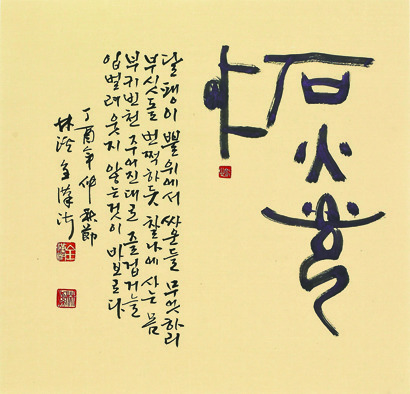 石火光
中
달팽이 뿔위에서 싸운들 무엇하리
부싯돌 번쩍하듯 찰나에 사는 몸
부귀빈천 주어진대로 즐겁거늘
입벌려 웃지 않는것이 바보로다
丁酉年 仲秋節
林 金漢